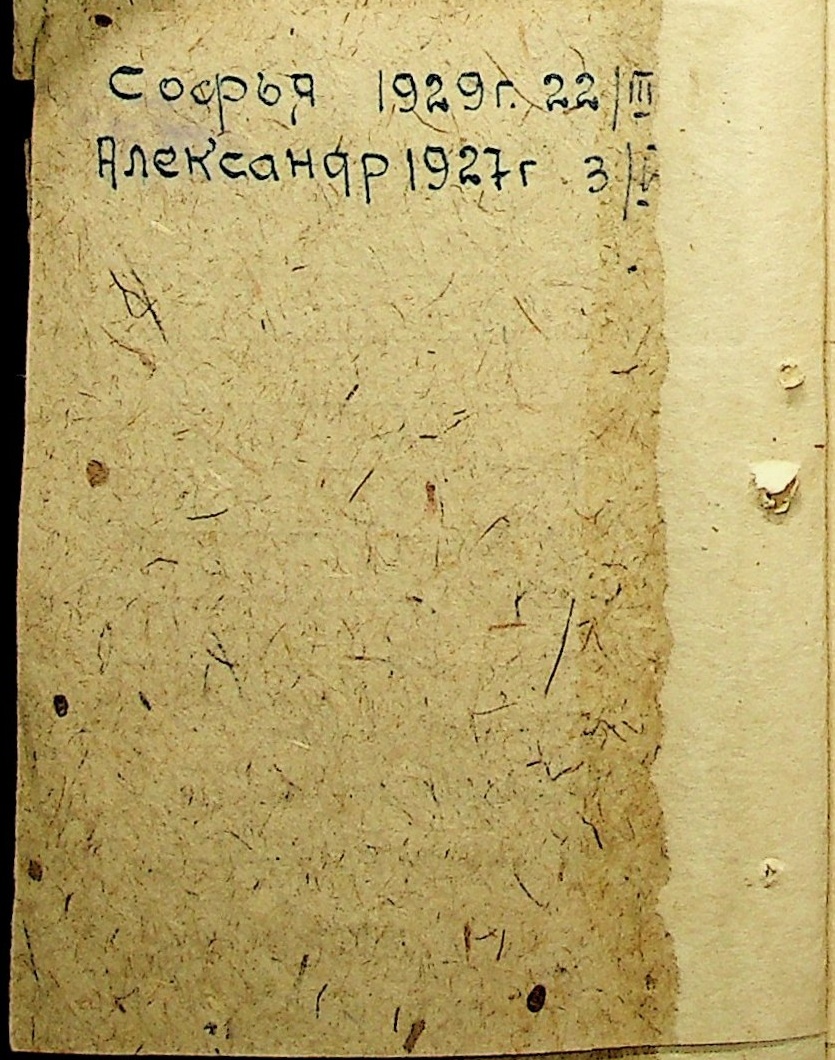 Софья 1929г. 22/III
Александр 1927г 3